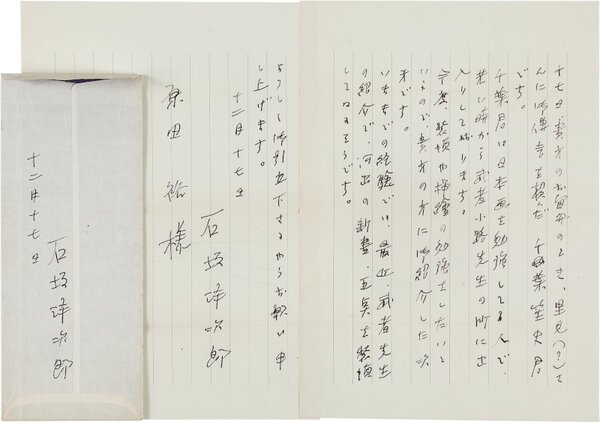 十七日貴方のお留守のとき、里見(?)さ
んに御傳言を頼んだ 千葉君
です。
千葉君は日本画を勉強してる人で、
若い時から武者小路先生の所に出
入りして居ります。
今度装幀や挿繪の勉強をしたいと
いふので、貴方の方に御紹介した次
第です。
いままでの経験では、最近、武者先生
の紹介で、河出の新書、五点を装幀
してゐるそうです。
よろしく御引立下さるやうお願ひ申
し上げます。
十二月十七日
石坂洋次郎
原田裕様
十二月十七日
石坂洋次郎